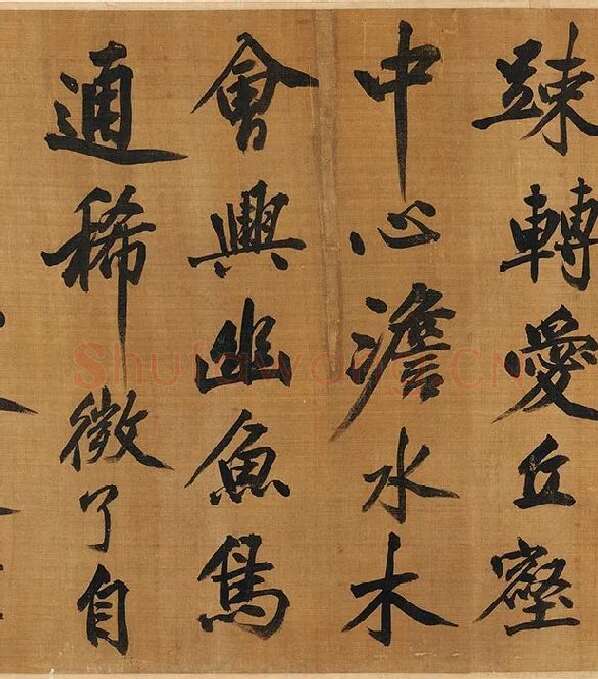 踈轉愛丘壑
中心澹水木
會興幽魚鳥
通稀微了自